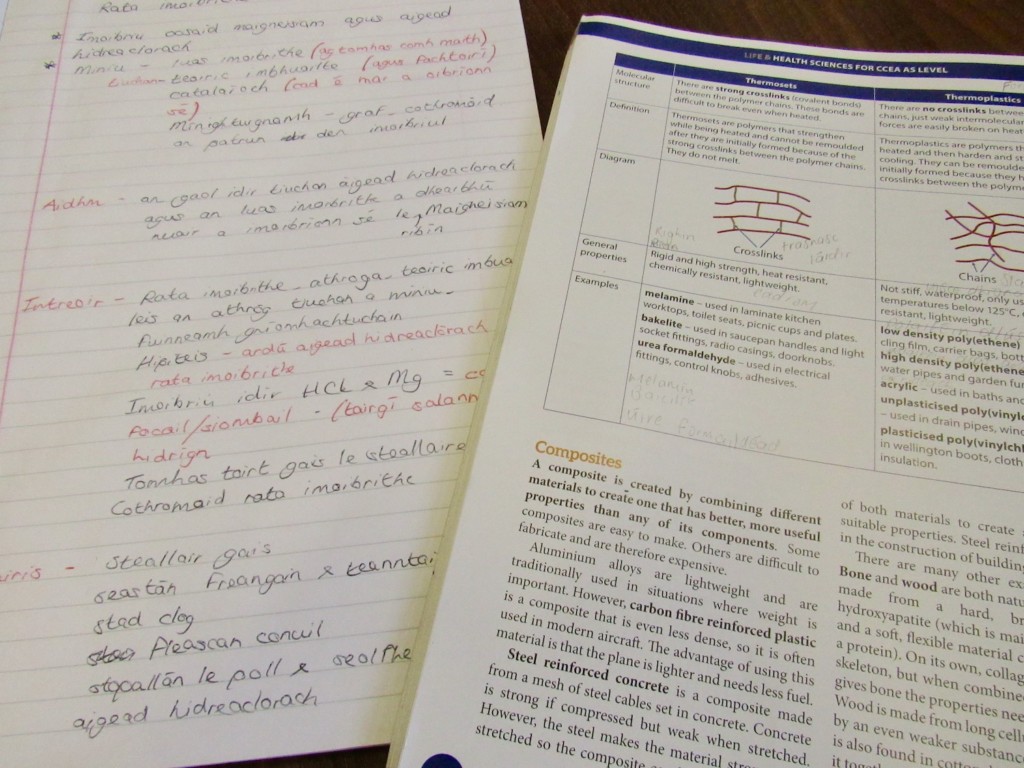 Rata
* Imoibriú ocsaid maignéisiam agus aigéad
hidreaclórach
* Míniú - luas imoibrithe (ag tomhas comh maith)
tiúchan - teoiric imbhuailte (agus fachtóirí)
catalaíoch (cad é mar a oibríonn
sé)
graf - cothromóid
an patrún den imoibriú
Aidhm - an gaol idir tiúchan aigéad hidreaclorach
agus an luas imoibrithe a dhearbhú
nuair a imoibríonn sé le Maighnéisiam
ribín
Intreoir - Rata imoibrithe - athróga - teoiric imbua
leis an athróg tiuchan a míniu -
fuinneamh gníomhachtúcháin
Hipitéis - ardú aigéad hidreaclórach
rata imoibrithe
Imoibriú idir HCl & Mg =
focail/siombail - (táirgí salann
hidrigin
Tomhas toirt gáis le steallaire
Cothromóid rata imoibrithe
steallair gáis
seastán freangáin & teanntaí
stad clog
fleascán cónúil
stopallán le poll &
aigéad hidreaclorach
LIFE & HEALTH SCIENCES FOR CCEA AS LEVEL
Thermosets
Thermoplastics
Molecular
structure
There are strong crosslinks (covalent bonds)
between the polymer chains. These bonds are
difficult to break even when heated.
There are no crosslinks
chains, just weak intermolecular
forces are easily broken on
Definition
Thermosets are polymers that strengthen
while being heated and cannot be remoulded
after they are initially formed because of the
strong crosslinks between the polymer chains.
They do not melt.
Thermoplastics are polymers
heated and then harden and
cooling. They can be
initially formed because they
crosslinks between the
Diagram
Righin
Crosslinks
trasnasc
láidir
Chains
General
properties
Rigid and high strength, heat resistant,
chemically resistant, lightweight.
éadrom
Not stiff, waterproof, only
temperatures below 125°C,
resistant, lightweight.
Examples
melamine – used in laminate kitchen
worktops, toilet seats, picnic cups and plates.
bakelite – used in saucepan handles and light
socket fittings, radio casings, doorknobs.
urea formaldehyde – used in electrical
fittings, control knobs, adhesives.
Melamin
low density poly(ethene)
cling film, carrier bags,
high density
water pipes and garden
acrylic – used in baths and
unplasticised
– used in drain pipes,
plasticised
in wellington boots,
insulation.
Composites
A composite is created by combining different
materials to create one that has better, more useful
properties than any of its components. Some
composites are easy to make. Others are difficult to
fabricate and are therefore expensive.
Aluminium alloys are lightweight and are
traditionally used in situations where weight is
important. However, carbon fibre reinforced plastic
is a composite that is even less dense, so it is often
used in modern aircraft. The advantage of using this
material is that the plane is lighter and needs less fuel.
Steel reinforced concrete is a composite made
from a mesh of steel cables set in concrete. Concrete
is strong if compressed but weak when stretched.
However, the steel makes the material
stretched so the composite
of both materials to create
suitable properties. Steel
in the construction of
There are many other
Bone and wood are both
made from a hard,
hydroxyapatite (which is
and a soft, flexible material
a protein). On its own,
skeleton, but when
gives bone the properties
Wood is made from long
by an even weaker
is also found in
it